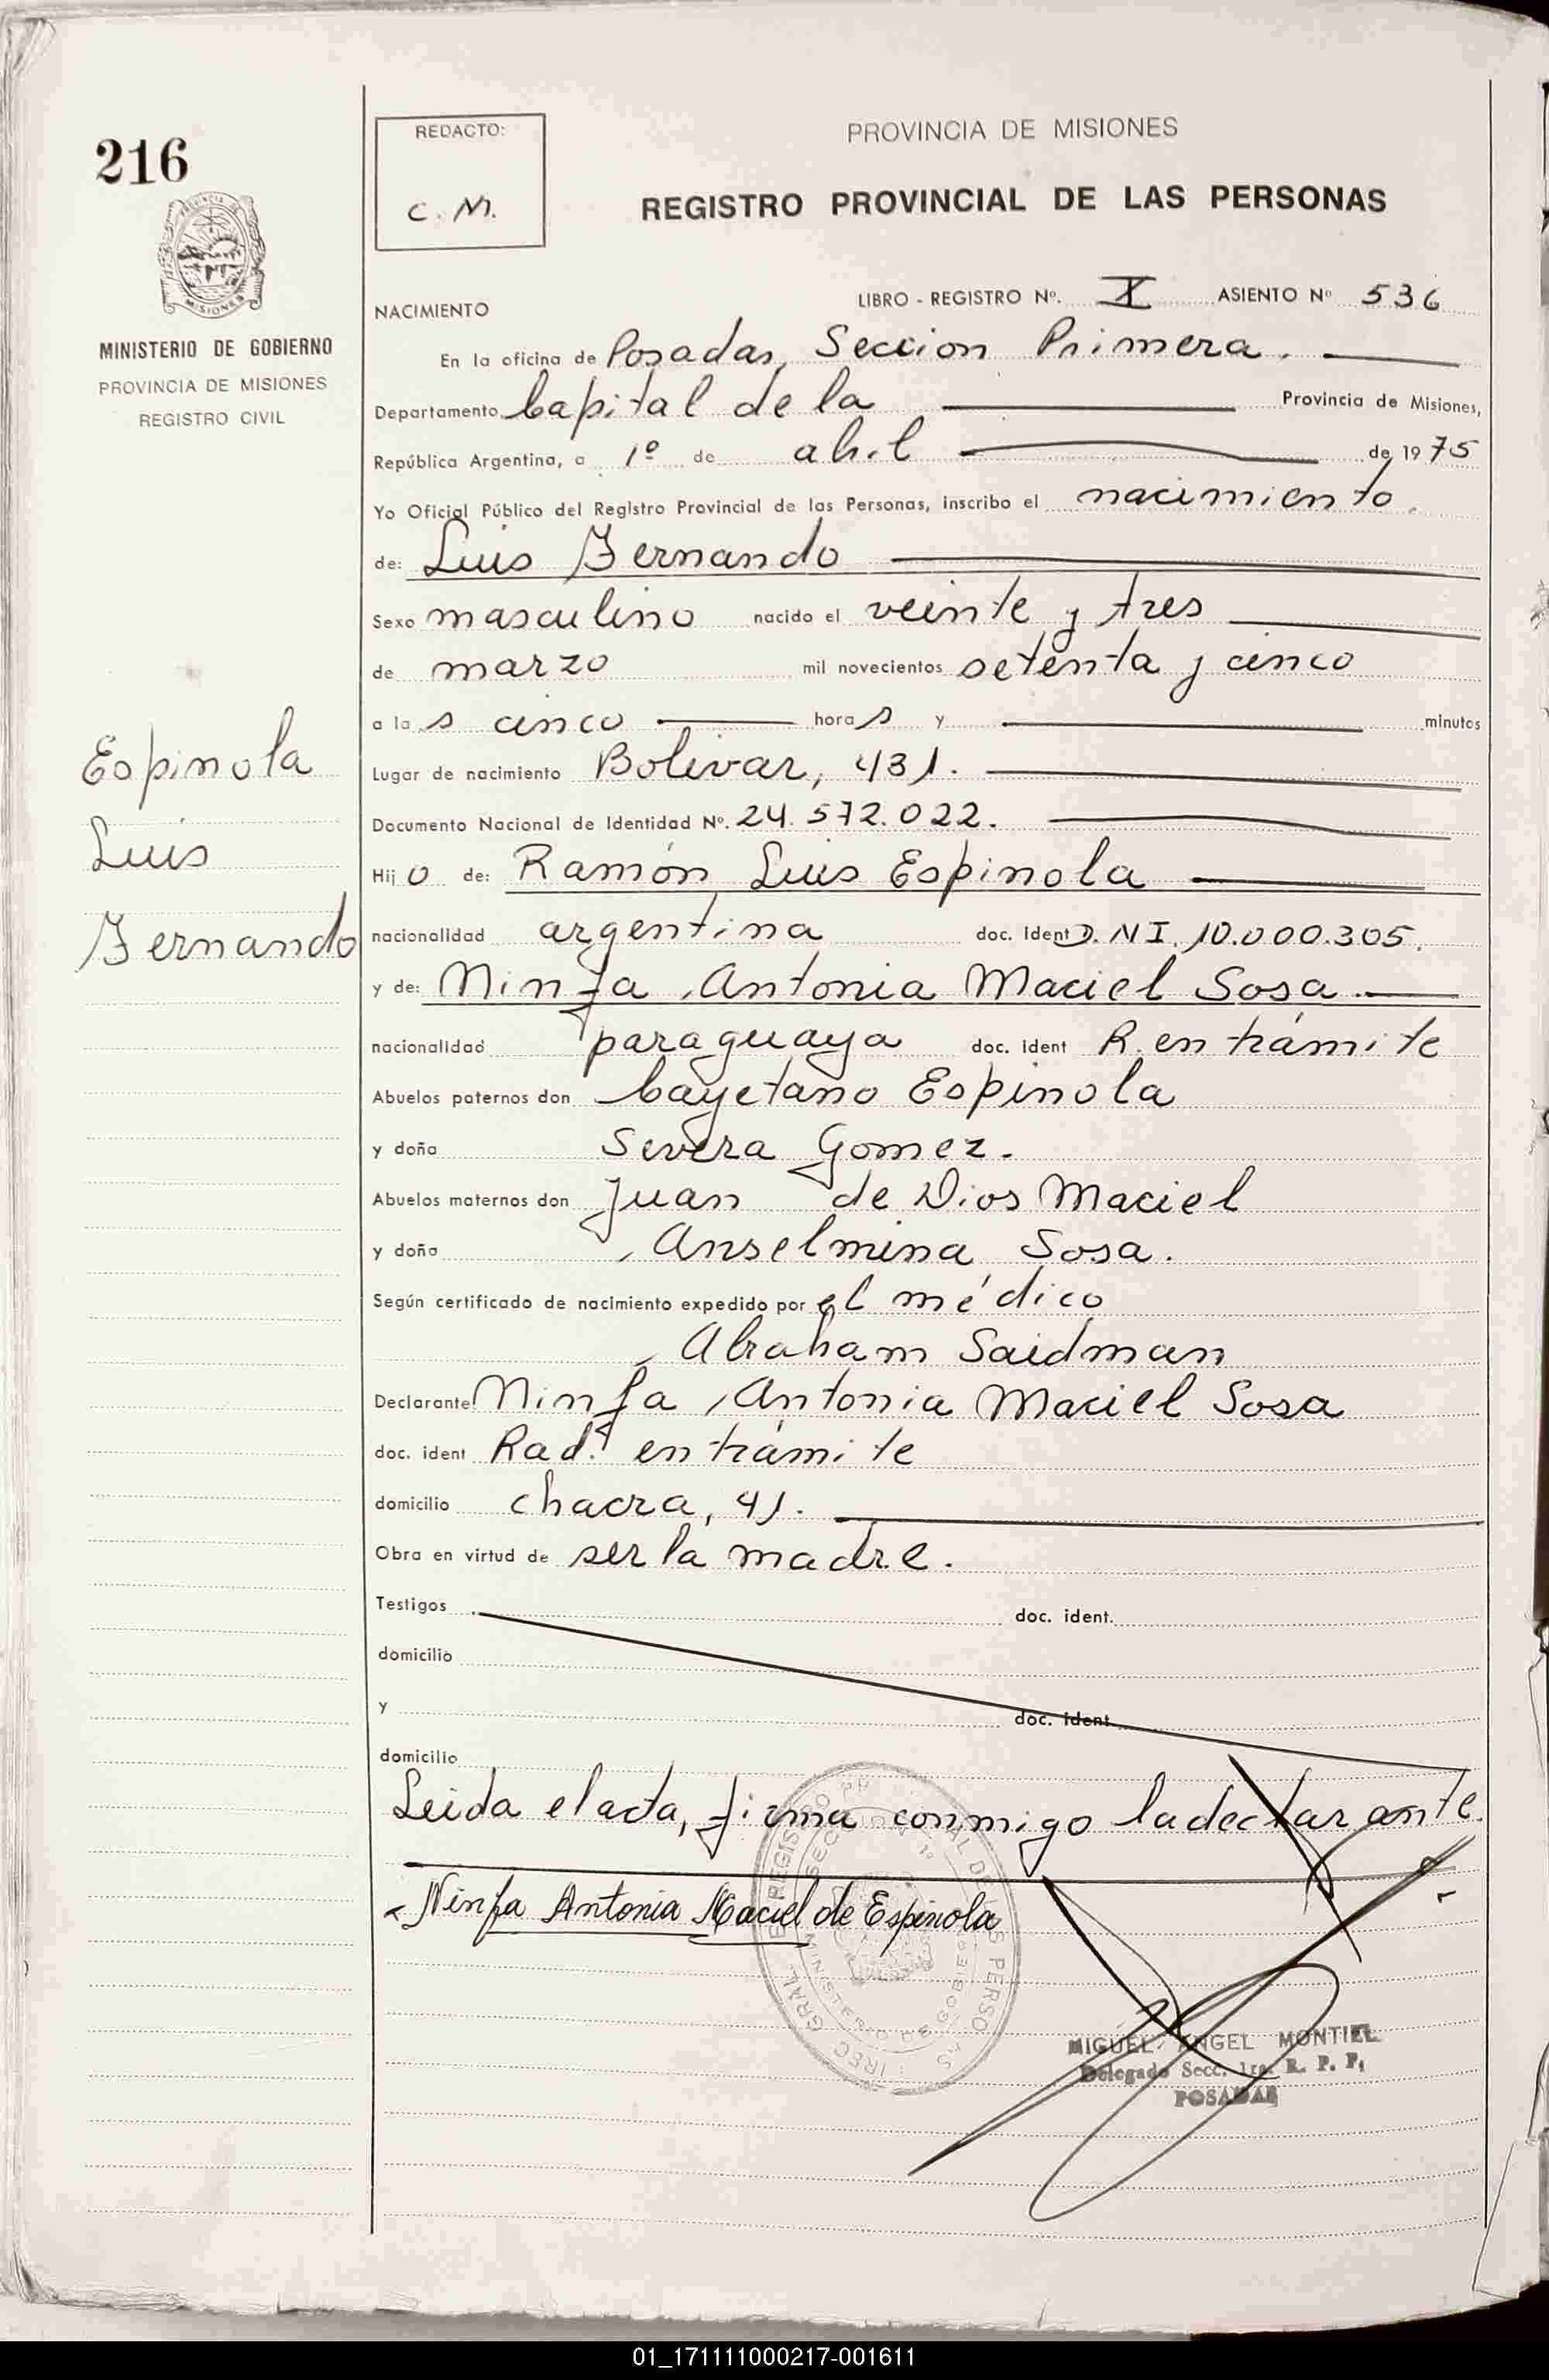 216
MINISTERIO DE GOBIERNO
PROVINCIA DE MISIONES
REGISTRO CIVIL
Espinola
Luis
Fernando
REDACTO:
C. M.
PROVINCIA DE MISIONES
REGISTRO PROVINCIAL DE LAS PERSONAS
NACIMIENTO LIBRO - REGISTRO Nº. I ASIENTO Nº 536
En la oficina de Posadas, Seccion Primera.
Departamento Capital de la Provincia de Misiones,
República Argentina, a 1º de abril de 1975
Yo Oficial Público del Registro Provincial de las Personas, inscribo el nacimiento.
de: Luis Fernando
Sexo masculino nacido el veinte y tres
de marzo mil novecientos setenta y cinco
a las cinco horas y minutos
Lugar de nacimiento Bolivar, 431.
Documento Nacional de Identidad Nº. 24.572.022.
Hijo de: Ramón Luis Espinola
nacionalidad argentina doc. Ident D.N.I. 10.000.305.
y de: Ninfa Antonia Maciel Sosa.
nacionalidad paraguaya doc. ident R. en trámite
Abuelos paternos don Cayetano Espinola
y doña Severa Gomez.
Abuelos maternos don Juan de Dios Maciel
y doña Anselmina Sosa.
Según certificado de nacimiento expedido por el médico
Abraham Saidman
Declarante Ninfa Antonia Maciel Sosa
doc. ident Rad. en trámite
domicilio chacra, 41.
Obra en virtud de ser la madre.
Testigos doc. ident.
domicilio
y doc. ident
domicilio
Leida el acta, firma conmigo la declarante.
Ninfa Antonia Maciel de Espinola
MIGUEL ANGEL MONTIEL
Delegado Secc. 1ra. R. P. P.
POSADAS
01_171111000217-001611